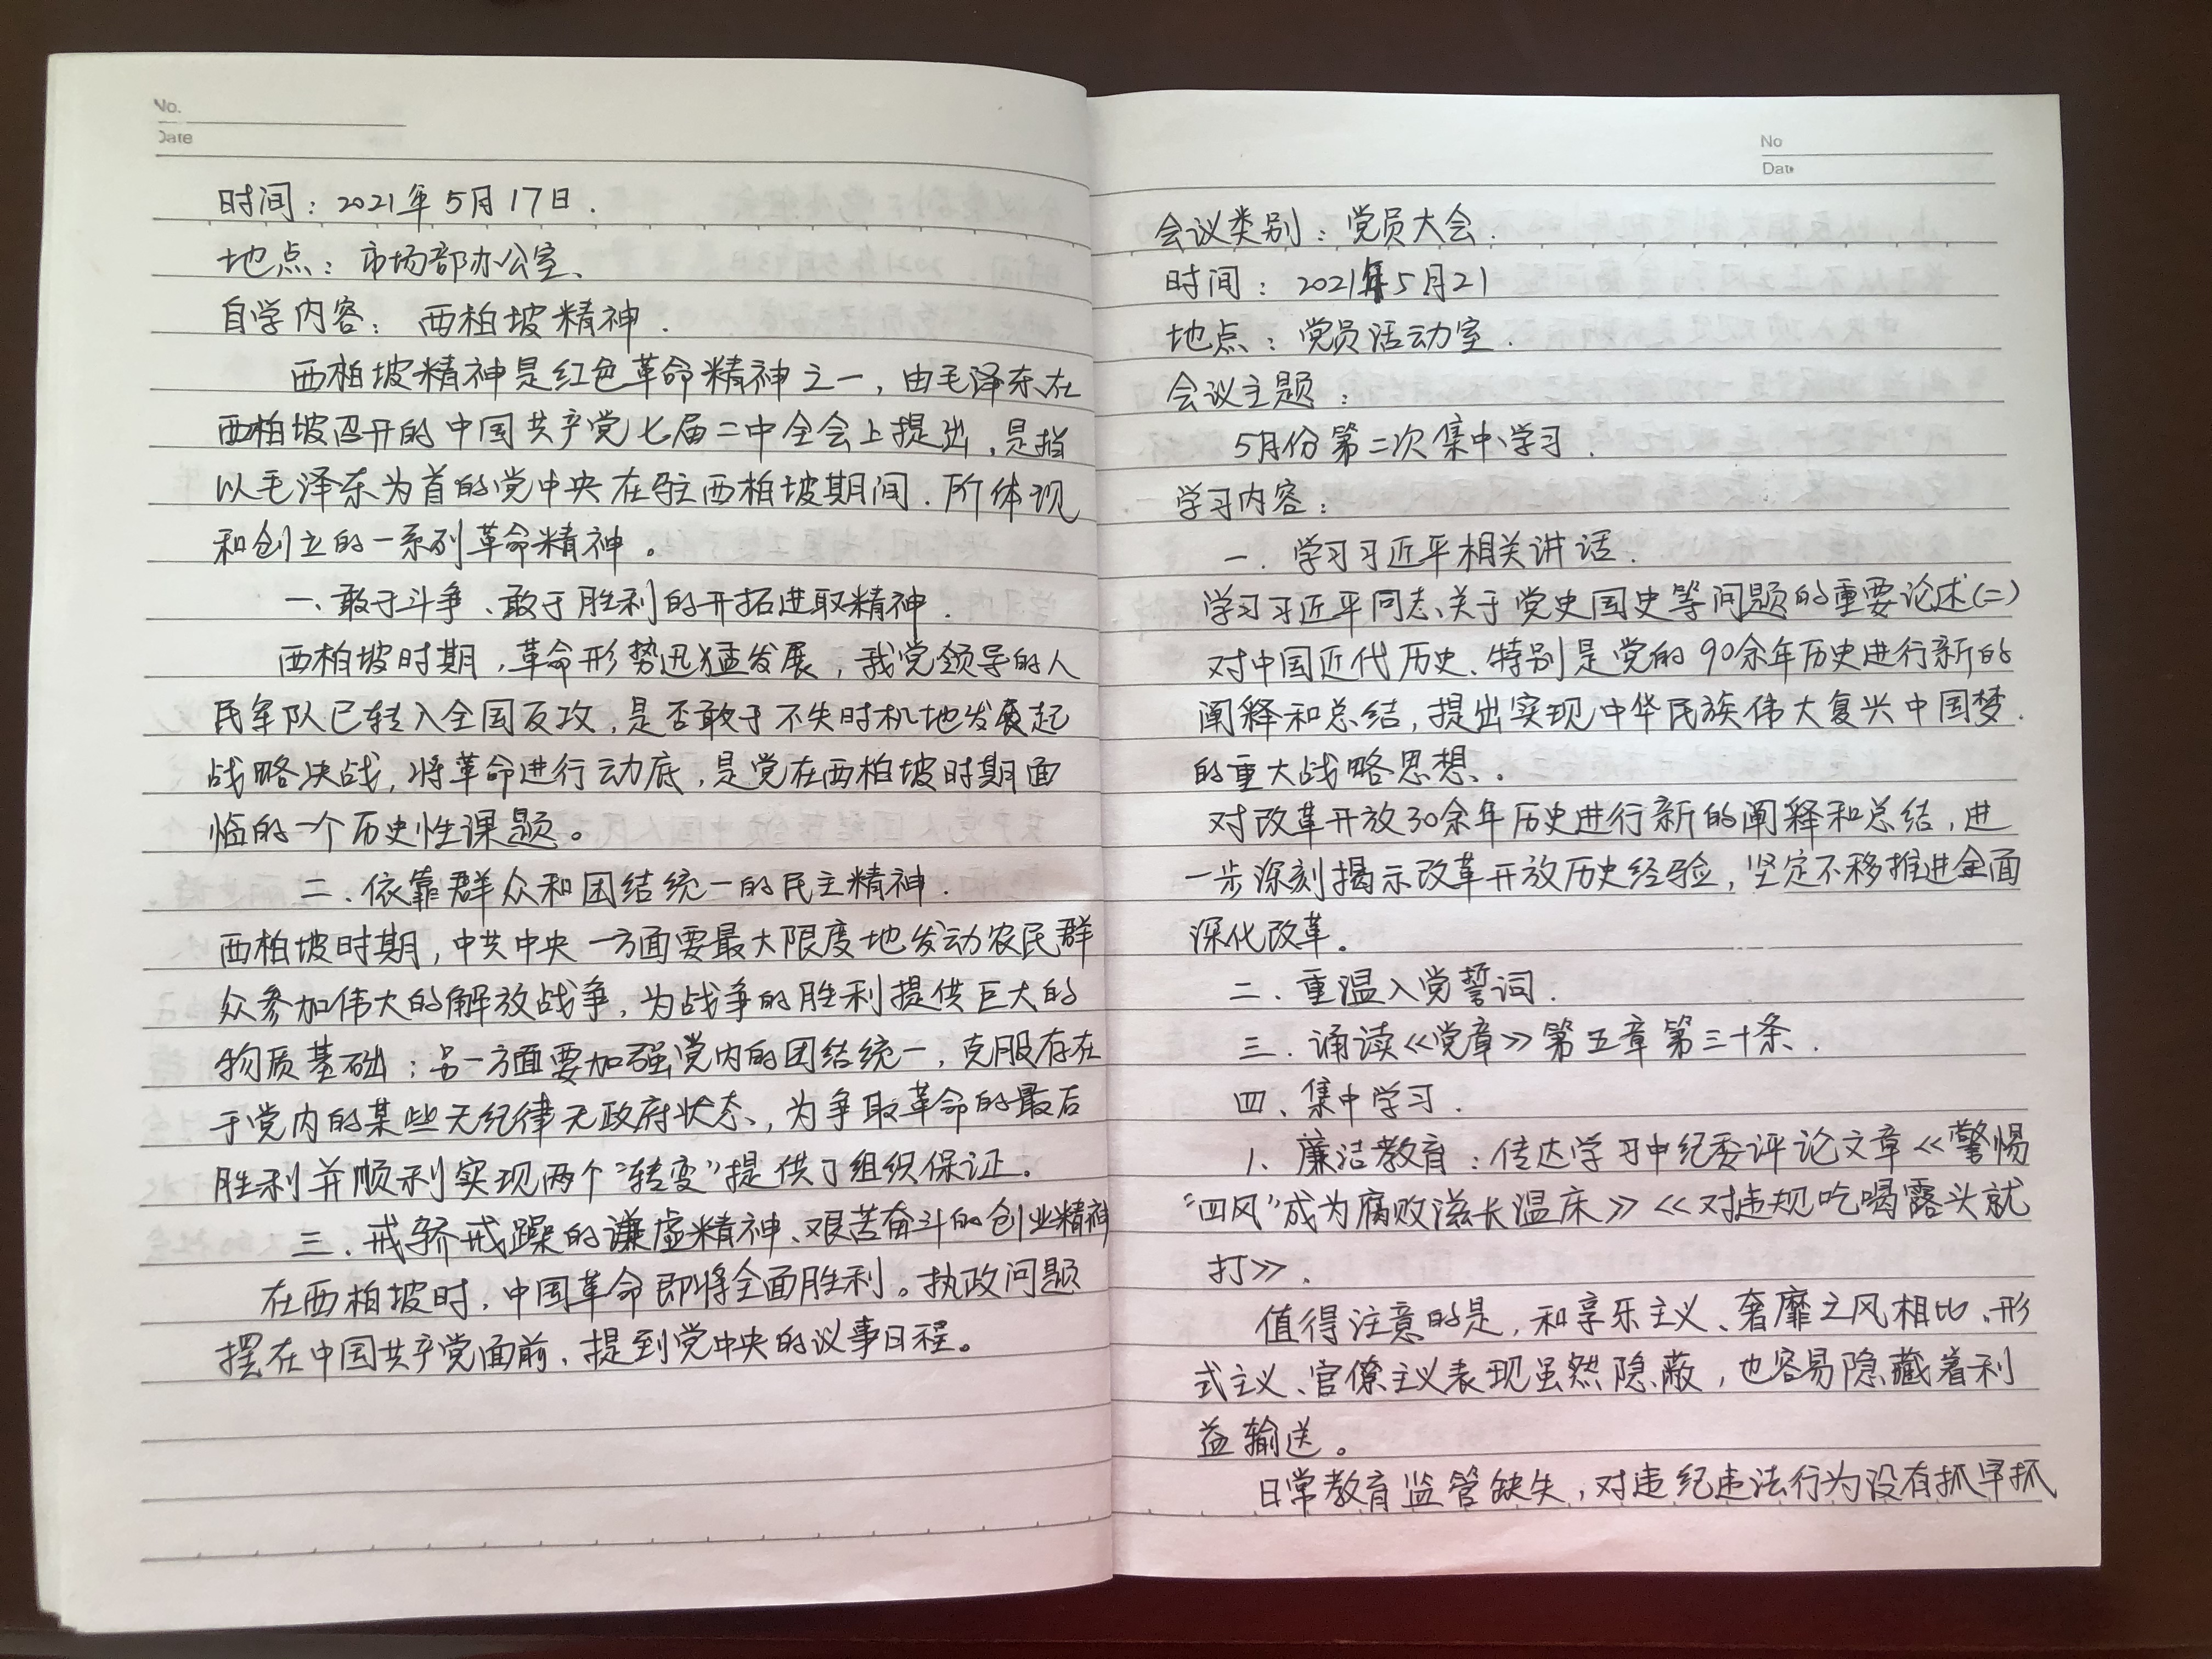 No.
Date
时间：2021年5月17日.
地点：市场部办公室、
自学内容：西柏坡精神.
西柏坡精神是红色革命精神之一，由毛泽东在
西柏坡召开的中国共产党七届二中全会上提出，是指
以毛泽东为首的党中央在驻西柏坡期间.所体现
和创立的一系列革命精神。
一、敢于斗争、敢于胜利的开拓进取精神.
西柏坡时期，革命形势迅猛发展，我党领导的人
民军队已转入全国反攻，是否敢于不失时机地发展起
战略决战，将革命进行动底，是党在西柏坡时期面
临的一个历史性课题。
二、依靠群众和团结统一的民主精神.
西柏坡时期，中共中央一方面要最大限度地发动农民群
众参加伟大的解放战争，为战争的胜利提供巨大的
物质基础；另一方面要加强党内的团结统一，克服存在
于党内的某些无纪律无政府状态，为争取革命的最后
胜利并顺利实现两个“转变”提供了组织保证.
三、戒骄戒躁的谦虚精神、艰苦奋斗的创业精神
在西柏坡时，中国革命即将全面胜利。执政问题
摆在中国共产党面前，提到党中央的议事日程。
No
Date
会议类别：党员大会.
时间：2021年5月21
地点：党员活动室.
会议主题：
5月份第二次集中学习.
学习内容：
一.学习习近平相关讲话.
学习习近平同志关于党史国史等问题的重要论述(二)
对中国近代历史、特别是党的90余年历史进行新的
阐释和总结，提出实现中华民族伟大复兴中国梦.
的重大战略思想。
对改革开放30余年历史进行新的阐释和总结，进
一步深刻揭示改革开放历史经验，坚定不移推进全面
深化改革。
二.重温入党誓词.
三.诵读《党章》第五章第三十条.
四、集中学习.
1、廉洁教育：传达学习中纪委评论文章《警惕
“四风”成为腐败滋长温床》《对违规吃喝露头就
打》.
值得注意的是，和享乐主义、奢靡之风相比、形
式主义、官僚主义表现虽然隐蔽，也容易隐藏着利
益输送。
日常教育监管缺失，对违纪违法行为没有抓早抓